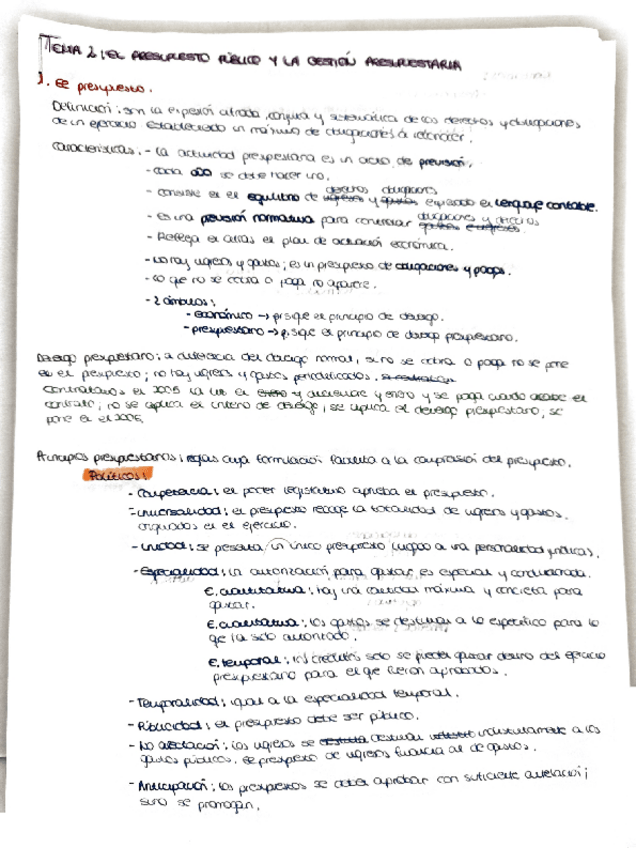 TEMA 2: EL PRESUPUESTO PÚBLICO Y LA GESTIÓN PRESUPUESTARIA
1. El presupuesto.
Definición: son la expresión cifrada, conjunta y sistemática de los derechos y obligaciones
de un ejercicio estableciendo un máximo de obligaciones a reconocer.
Características: - La actividad presupuestaria es un acto de previsión.
- cada año se debe hacer uno.
derechos obligaciones
- consiste en el equilibrio de ingresos y gastos expresado en lenguaje contable.
obligaciones y derechos
- Es una previsión normativa para controlar gastos e ingresos.
- Refleja en cifras el plan de actuación económica.
- No hay ingresos y gastos; es un presupuesto de obligaciones y pagos.
- Lo que no se cobra o paga no aparece.
- 2 ámbitos:
- económico → sigue el principio de devengo.
- presupuestario → sigue el principio de devengo presupuestario.
Devengo presupuestario: a diferencia del devengo normal, si no se cobra o paga no se pone
en el presupuesto; no hay ingresos y gastos periodificados.
Contratamos en 2005 la luz en diciembre y enero y se paga cuando acabe el
contrato; no se aplica el criterio de devengo, se aplica el devengo presupuestario, se
pone en el 2006.
Principios presupuestarios: reglas cuya formulación facilita a la comprensión del presupuesto.
Políticos:
- Competencia: el poder legislativo aprueba el presupuesto.
- Universalidad: el presupuesto recoge la totalidad de ingresos y gastos.
originados en el ejercicio.
- Unidad: se presenta un único presupuesto ligado a una personalidad jurídica.
- Especialidad: la autorización para gastar es especial y condicionada.
E. cuantitativa: hay una cantidad máxima y concreta para
gastar.
E. cualitativa: los gastos se destinan a lo específico para lo
que ha sido autorizado.
E. temporal: los créditos solo se pueden gastar dentro del ejercicio
presupuestario para el que fueron aprobados.
- Temporalidad: igual a la especialidad temporal.
- Publicidad: el presupuesto debe ser público.
- No afectación: los ingresos se destinan indistintamente a los
gastos públicos. El presupuesto de ingresos financia al de gastos.
- Anticipación: los presupuestos se deben aprobar con suficiente antelación;
sino se prorrogan.